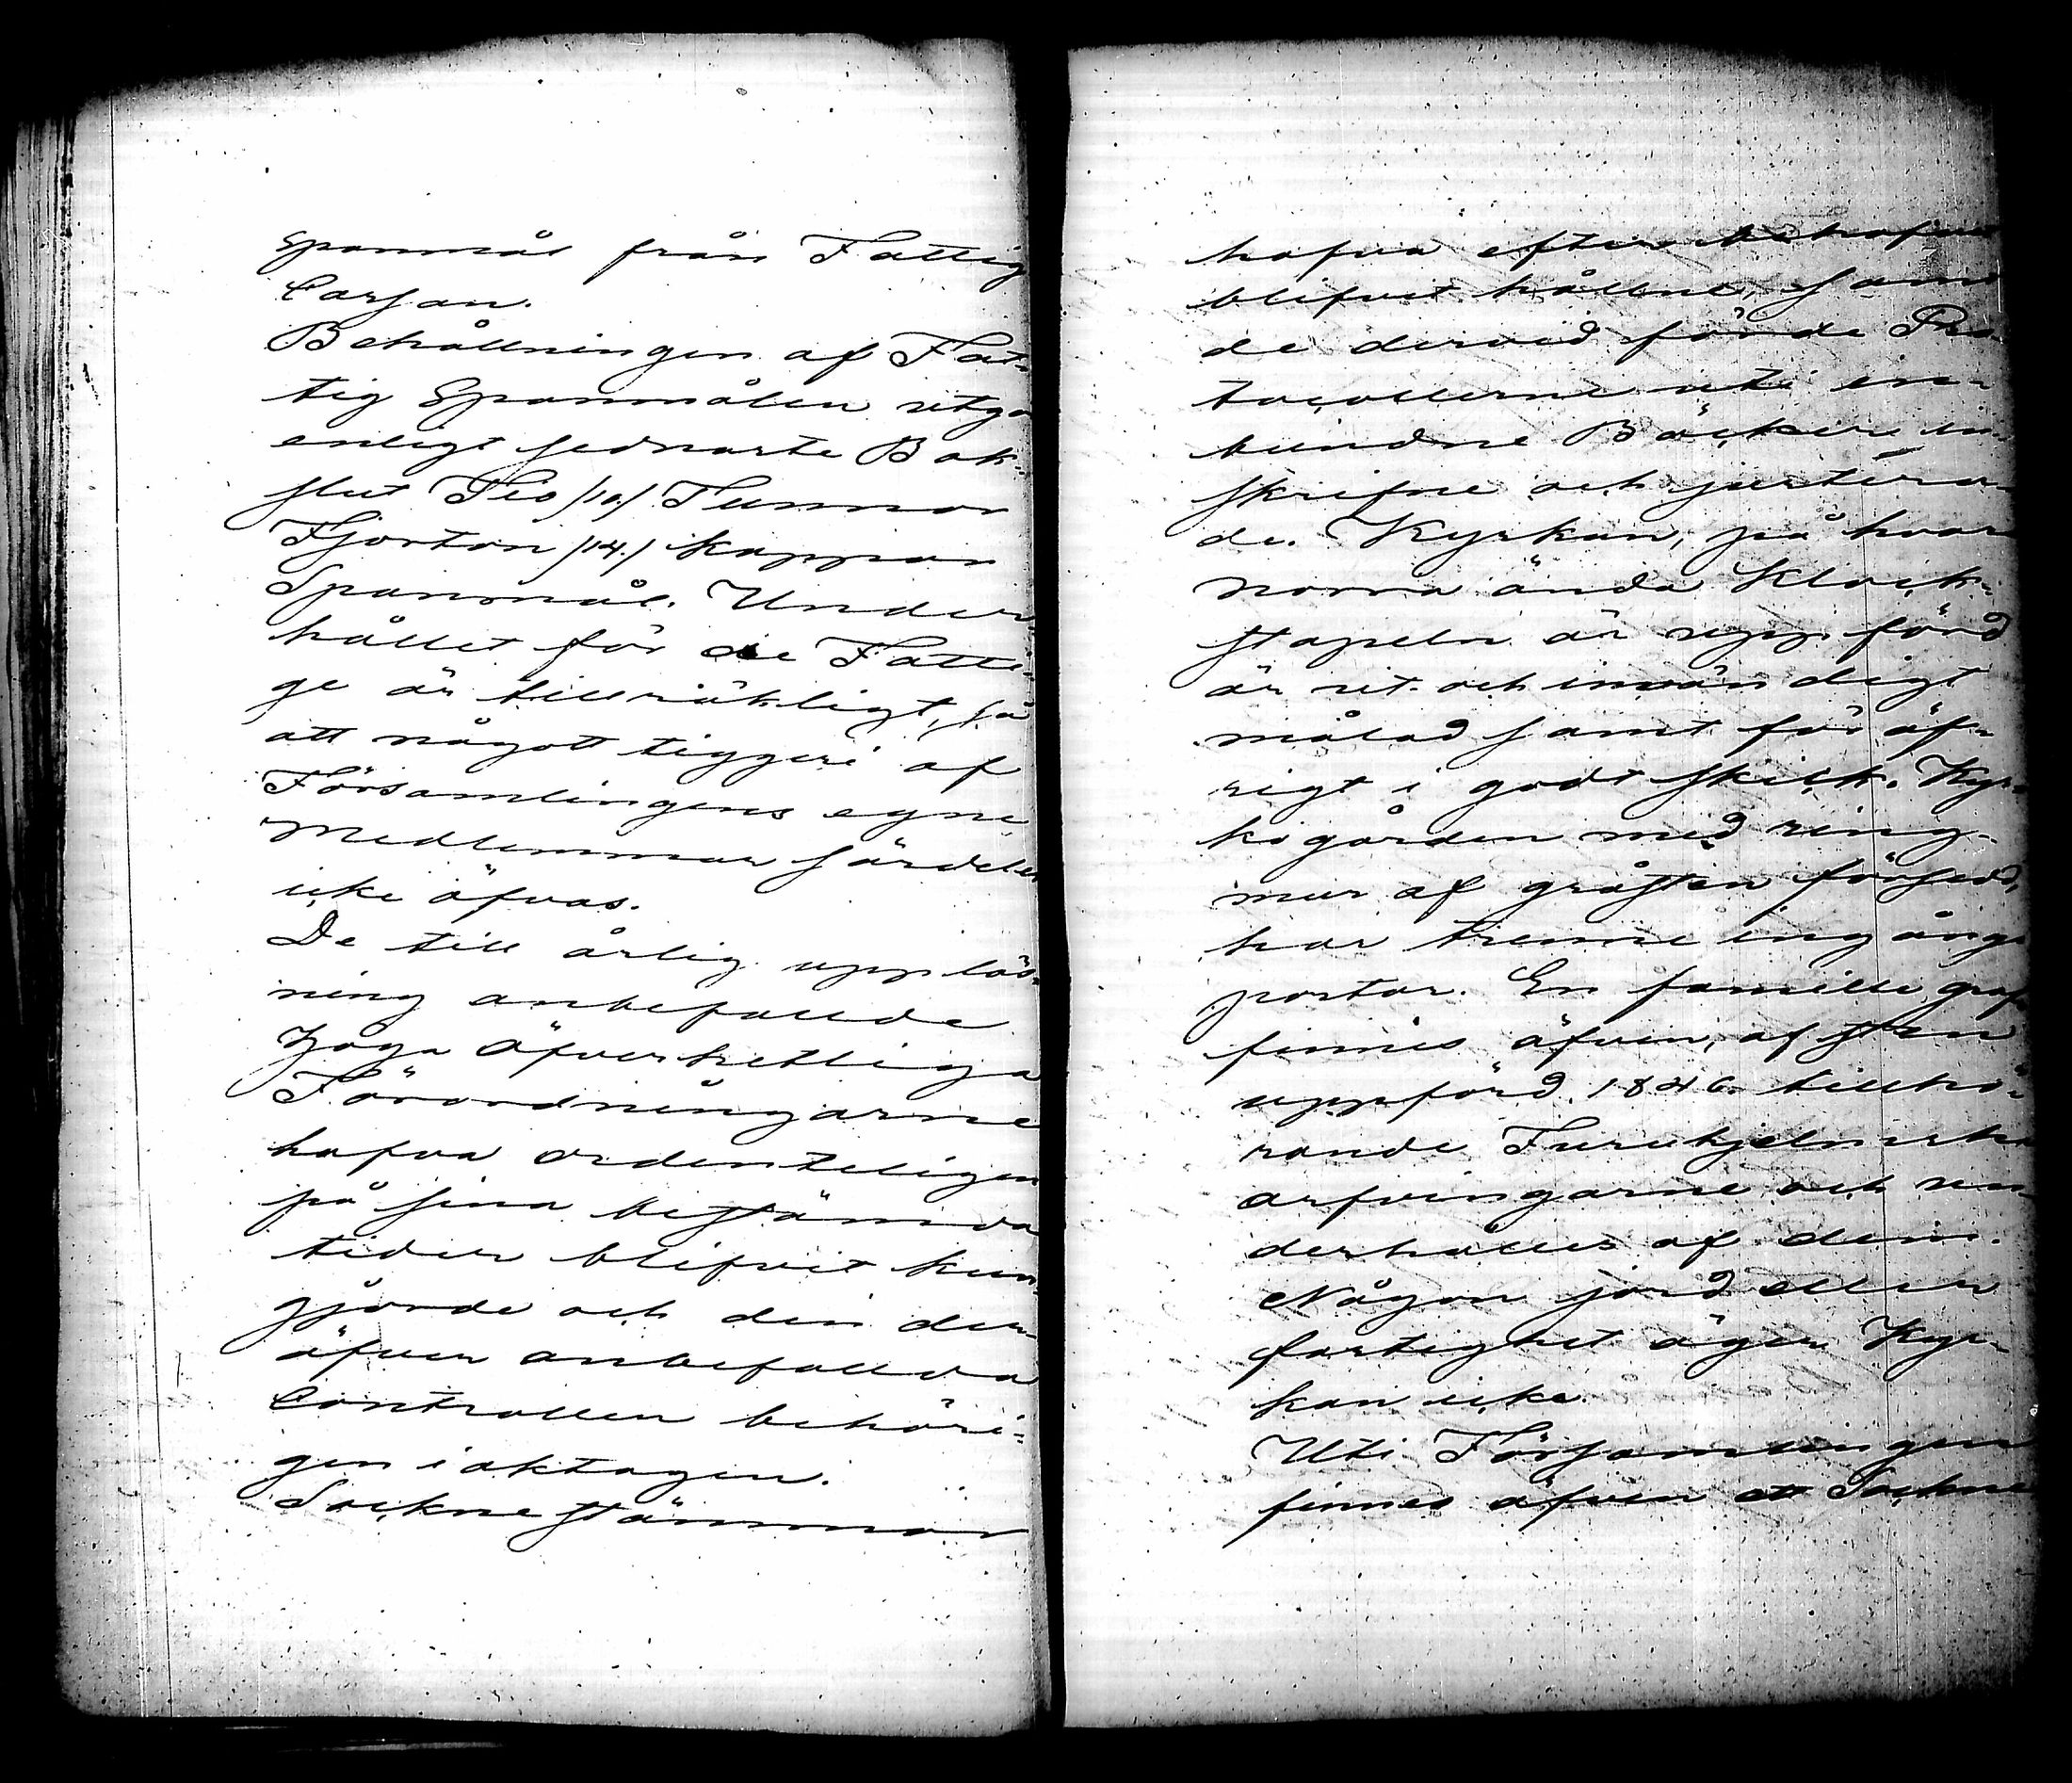 Spanmål från Fattig
Cassan.
Behållningen af Fat-
tig Spanmålen utgör
enligt sednaste Bok-
slut Tio /10/ Tunnor
Fjorton /14./ kappar
Spanmål. Under-
hållet för de Fatti-
ge är tillräkligt, så
att något tiggeri af
Församlingens egne
Medlemmar särdeles
icke öfvas.
De till årlig uppläs-
ning anbefallde
Höga Öfverhetliga
Förordningarne
hafva ordenteligen
på sina bestämda
tider blifvit kun-
gjorde och den der-
öfver anbefallda
Controllen behöri-
gen iakttagen.
Sockne stämmor
hafva efter behofvet
blifvit hållne, samt
de dervid förde Pro-
tocollerne uti in-
bundne Böcker in-
skrifne och justera-
de. Kyrkan, på hvars
norra ända Klock-
stapeln är uppförd
är ut- och invändigt
målad samt för öf-
rigt i godt skick. Kyr-
kogården med ring-
mur af gråsten försedd,
har trenne ingångs
portar. En familje graf
finnes äfven, af sten
uppförd 1846. tillhö-
rande Furuhjelmska
arfvingarne och un-
derhålles af dem.
Någon jord eller
fastighet äger Kyr-
kan icke.
Uti Församlingen
finnes äfven ett Sockne